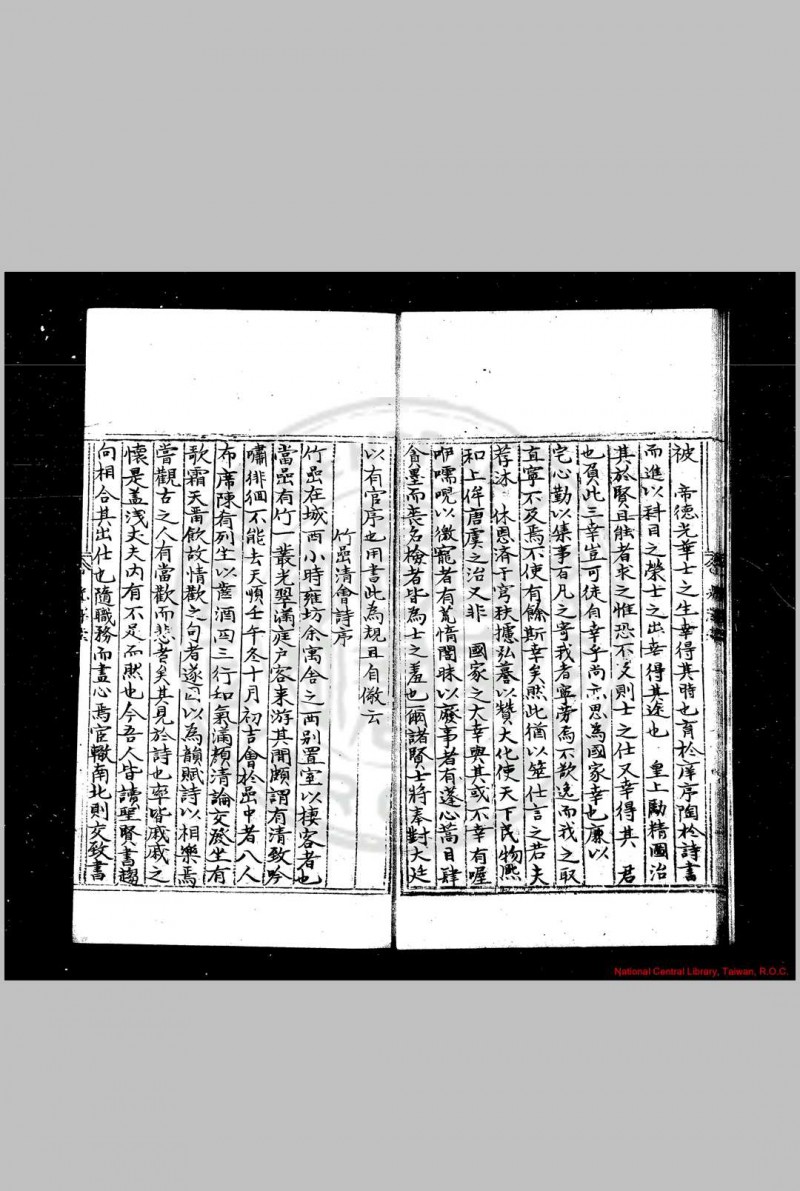 被　帝德光華士之生幸得其時也育於庠序陶於詩書
而進以科目之榮士之出幸得其途也　皇上勵精圖治
其於賢且能者求之惟恐不及則士之仕又幸得其　君
也負此三幸豈可徒自幸乎尚亦思為國家幸也廉以
宅心勤以集事百凡之寄我者寧勞焉不欲逸而我之取
直寧不及焉不使有餘斯幸矣然此猶以筮仕言之若夫
荐沐　休恩濟于宮秩攄弘謩以贊大化使天下民物熙
和上侔唐虞之治又非　國家之大幸與其或不幸有喔
咿嚅唲以徼寵者有荒惰闇昧以廢事者有蓬心蒿目肆
貪墨而喪名檢者皆為士之羞也爾諸賢士將奉對大廷
以有官序也用書此為規且自儆云
竹嵒清會詩序
竹嵒在城西小時雍坊余寓舍之西別置室以棲客者也
當嵒有竹一叢光翠滿庭戶客來游其間頗謂有清致吟
嘯徘徊不能去天順壬午冬十月初吉會於嵒中者八人
布席陳有列坐以齒酒四三行和氣滿顏清論交發坐有
歌霜天畱飲故情歡之句者遂因以為韻賦詩以相樂焉
嘗觀古之人有當歡而悲者矣其見於詩也率皆戚戚之
懷是盖淺丈夫內有不足而然也今吾人皆讀聖賢書趨
向相合其出仕也隨職務而盡心焉宦轍南北則交致書
National Central Library, Taiwan, R.O.C.